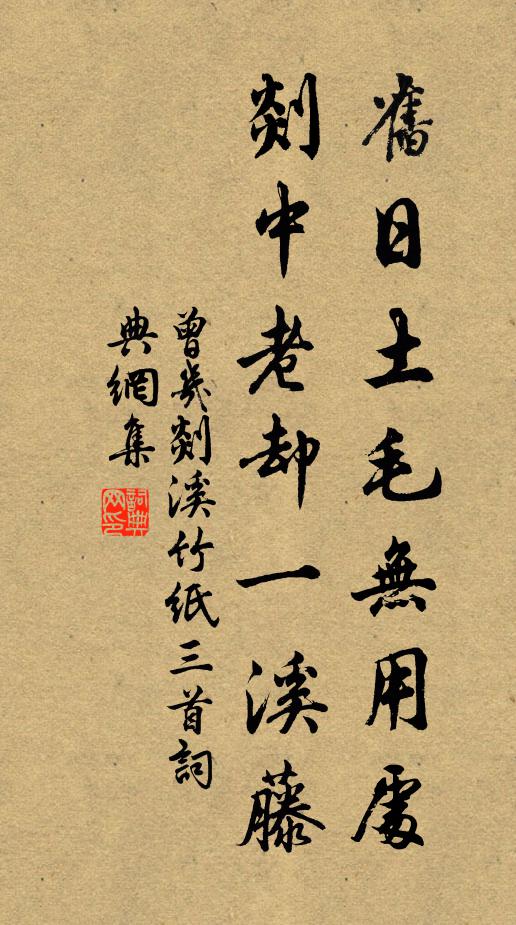 舊日土毛無用處
剡中老却一溪藤
曾幾剡溪竹紙三首詞
典網集
詞典網印